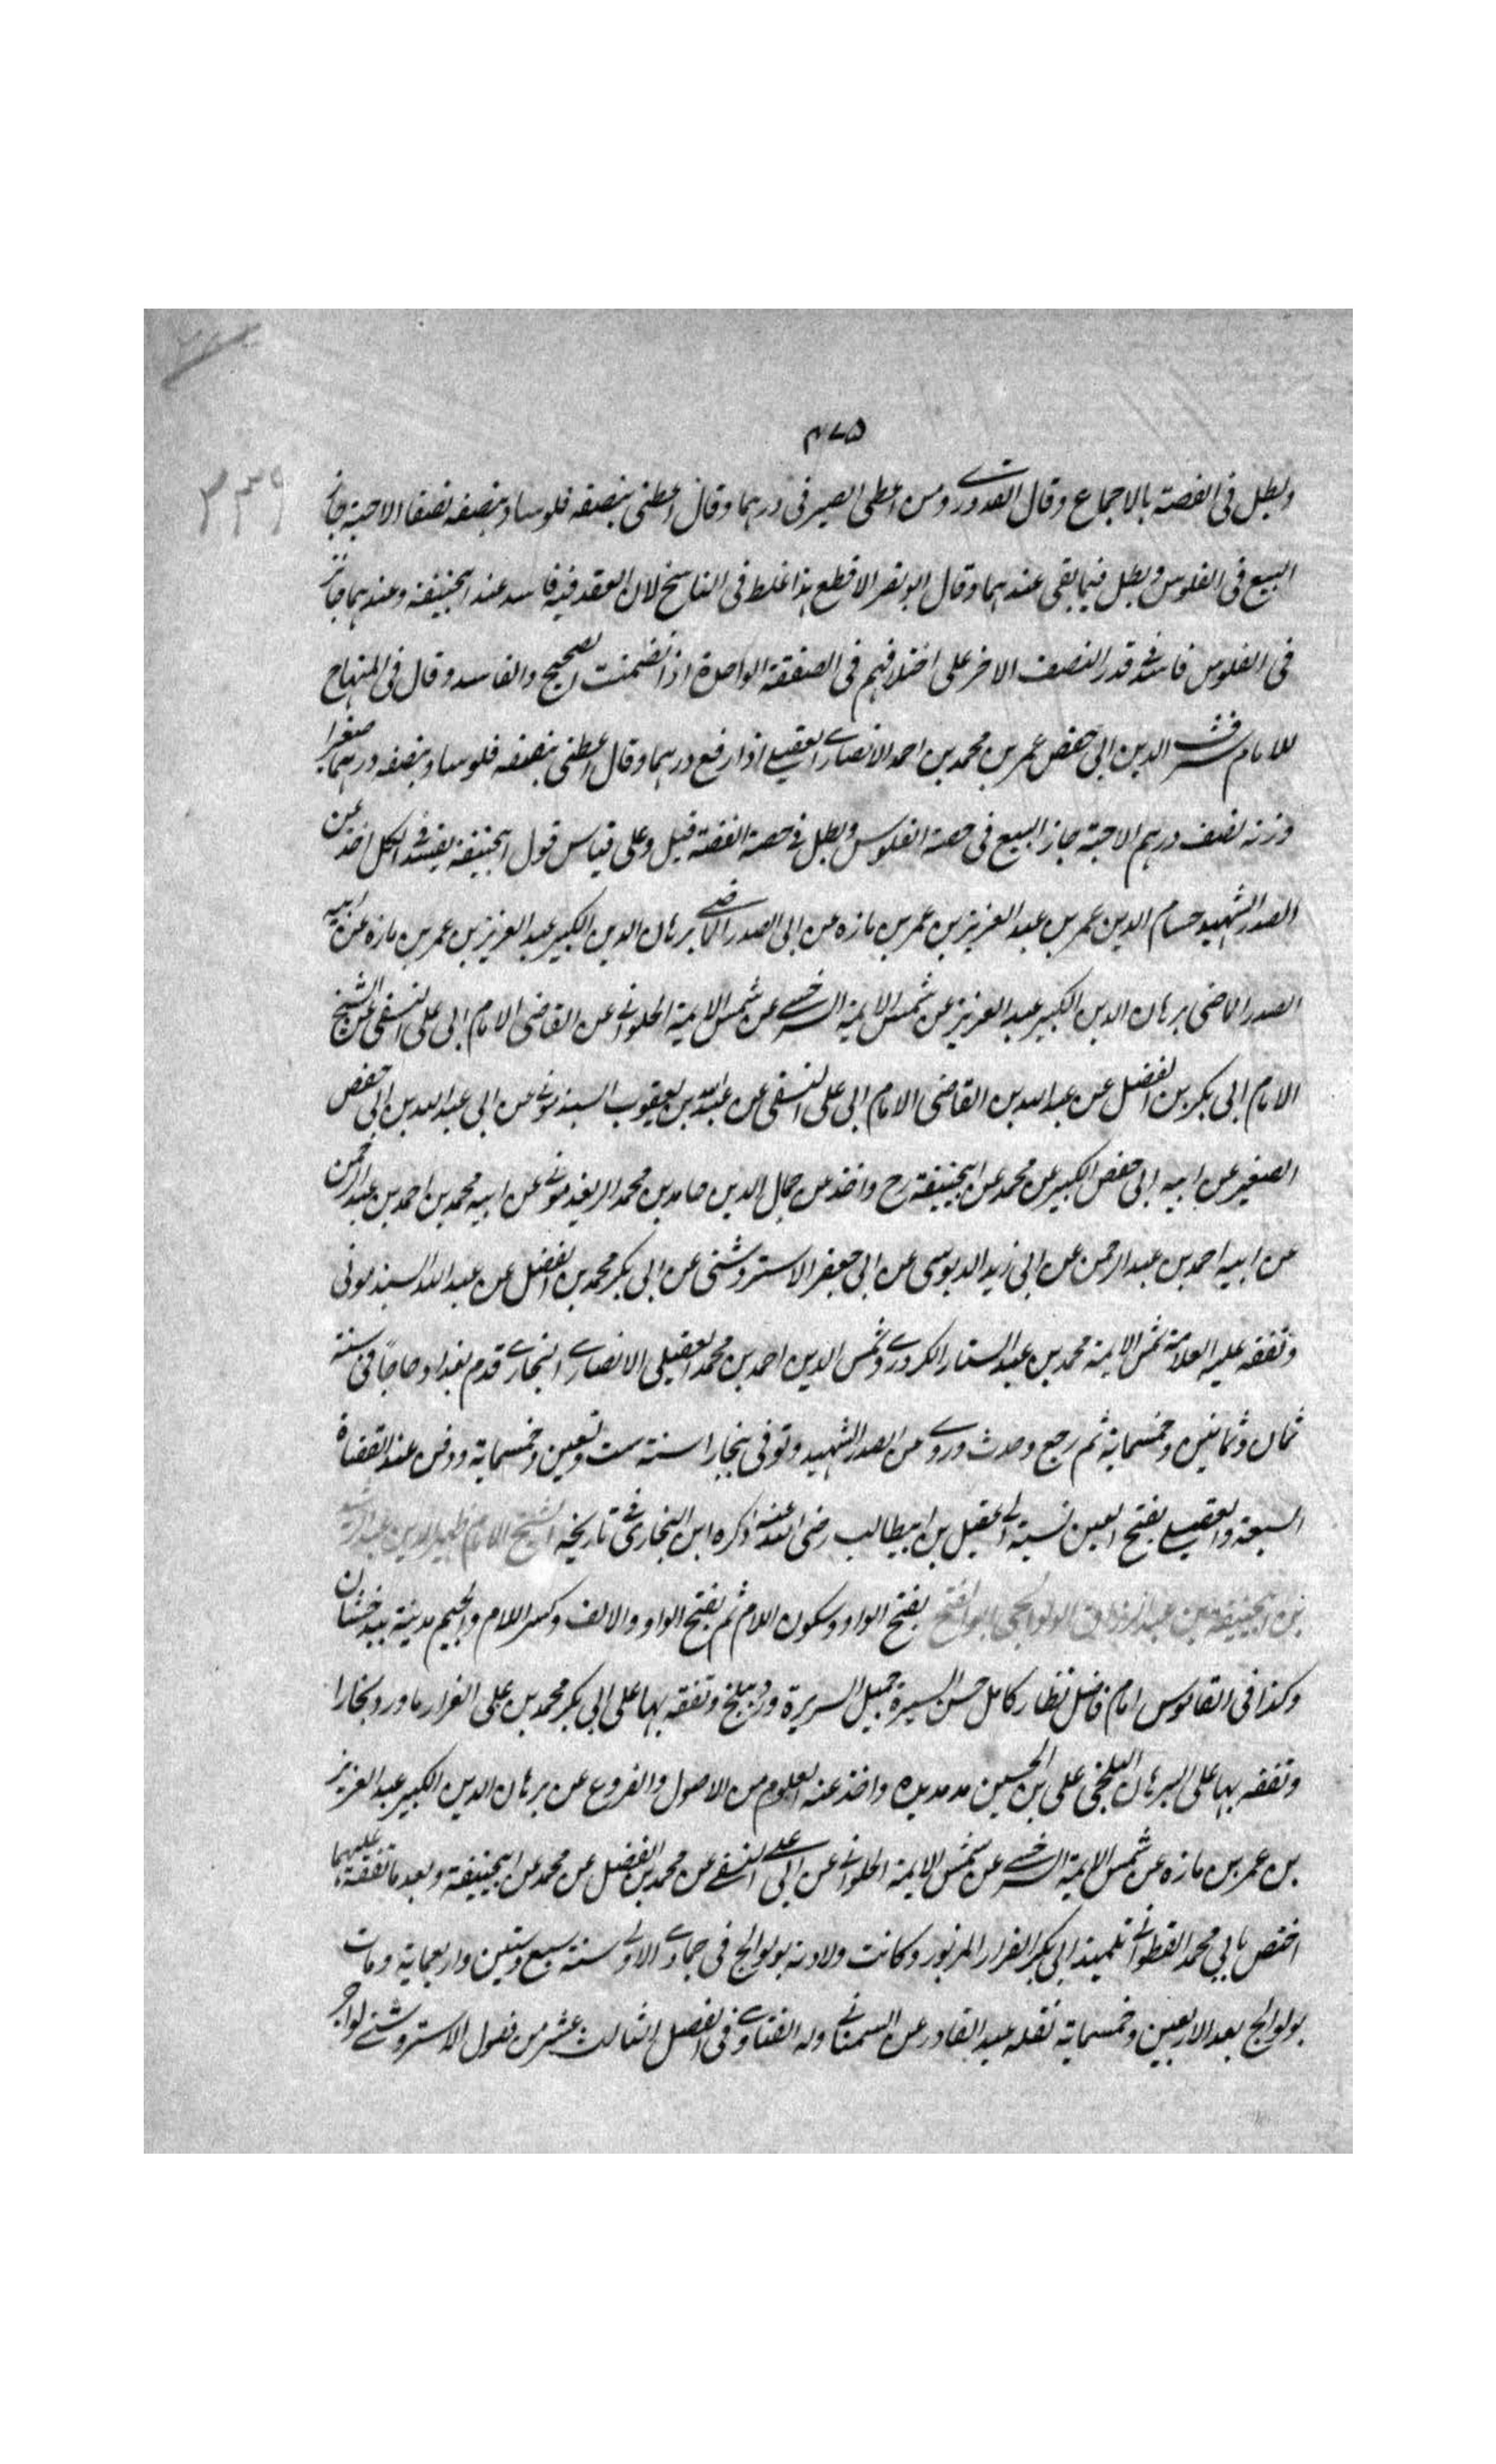 ٤٧٥
٣٣٩
وبطل فى الفضة بالاجماع وقال القدورے ومن اعطى الصيرفى درہما وقال اعطنى بنصفه فلوسا وبنصفه نصفا الاحبة جاز
البيع فى الفلوس وبطل فيما بقى عندہما وقال ابو نصر الاقطع ہذا غلط فى الناسخ لان العقد فيه فاسد عند ابيحنيفة وعندہما جائز
فى الفلوس فاسد فے قدر النصف الاخر على اختلافہم فى الصفقة الواحدة اذا تضمنت الصحيح والفاسد وقال فى المنہاج
للامام شرف الدين ابى حفص عمر بن محمد بن احمد الانصارے العقيلے اذا رفع درہما وقال اعطنى بنصفه فلوسا وبنصفه درہما صغيرا
وزنه نصف درہم الاحبة جاز البيع فى حصة الفلوس وبطل فے حصة الفضة قيل وعلى قياس قول ابيحنيفة يفسد فے الكل اخذ عن
الصدر الشہيد حسام الدين عمر بن عبد العزيز بن عمر بن مازه عن ابى الصدر الماضے برہان الدين الكبير عبد العزيز بن عمر بن مازه عن ابيه
الصدر الماضى برہان الدين الكبير عبد العزيز عن شمس الايمة السرخسے عن شمس الايمة الحلوانے عن القاضى الامام ابى على النسفى عن الشيخ
الامام ابى بكر بن الفضل عن عبد الله بن القاضى الامام ابى على النسفى عن عبد الله بن يعقوب السبذمونے عن ابى عبد الله بن ابى حفص
الصغير عن ابيه ابى حفص الكبير عن محمد عن ابيحنيفة رح واخذ عن جمال الدين حامد بن محمد الريغذمونے عن ابيه محمد بن احمد بن عبد الرحمن
عن ابيه احمد بن عبد الرحمن عن ابى زيد الدبوسى عن ابى جعفر الاستروشنى عن ابى بكر محمد بن الفضل عن عبد الله السبذمونى
وتفقه عليه العلامة شمس الايمة محمد بن عبد الستار الكردرے وشمس الدين احمد بن محمد العقيلى الانصارے البخارے قدم بغداد حاجا فى سنة
ثمان وثمانين وخمسماية ثم رجع وحدث وروے عن الصدر الشہيد وتوفى ببخارا سنة ست وتسعين وخمسماية ودفن عند القضاة
السبعة والعقيلے بفتح العين نسبة الے عقيل بن ابيطالب رضى الله عنه ذكره ابن النجار فے تاريخه الشيخ الامام ظہير الدين عبد الرشيد
بن ابيحنيفة بن عبد الرزاق الولوالجى ابو الفتح بفتح الواو وسكون اللام ثم بفتح الواو والالف وكسر اللام والجيم مدينة ببدخشان
وكذا فى القاموس امام فاضل نظار كامل حسن السيرة جميل السريرة ورد بلخ وتفقه بہا على ابى بكر محمد بن على القزار ما ورد بخارا
وتفقه بہا على البرہان البلخى على ابن الحسين مد مديده واخذ عنه العلوم من الاصول والفروع عن برہان الدين الكبير عبد العزيز
بن عمر بن مازه عن شمس الايمة السرخسے عن شمس الايمة الحلوانے عن ابى على النسفے عن محمد بن الفضل عن محمد عن ابيحنيفة وبعد ما تفقه عليہما
اختص بابي محمد القطوانے تلميذ ابى بكر القزار المزبور وكانت ولادته بولوالج فى جمادے الاولے سنة سبع وستين واربعماية ومات
بولوالج بعد الاربعين وخمسماية نقله عبد القادر عن السمعانے وله الفتاوے فى الفصل الثالث عشر من فصول الاستروشنے لو اجر